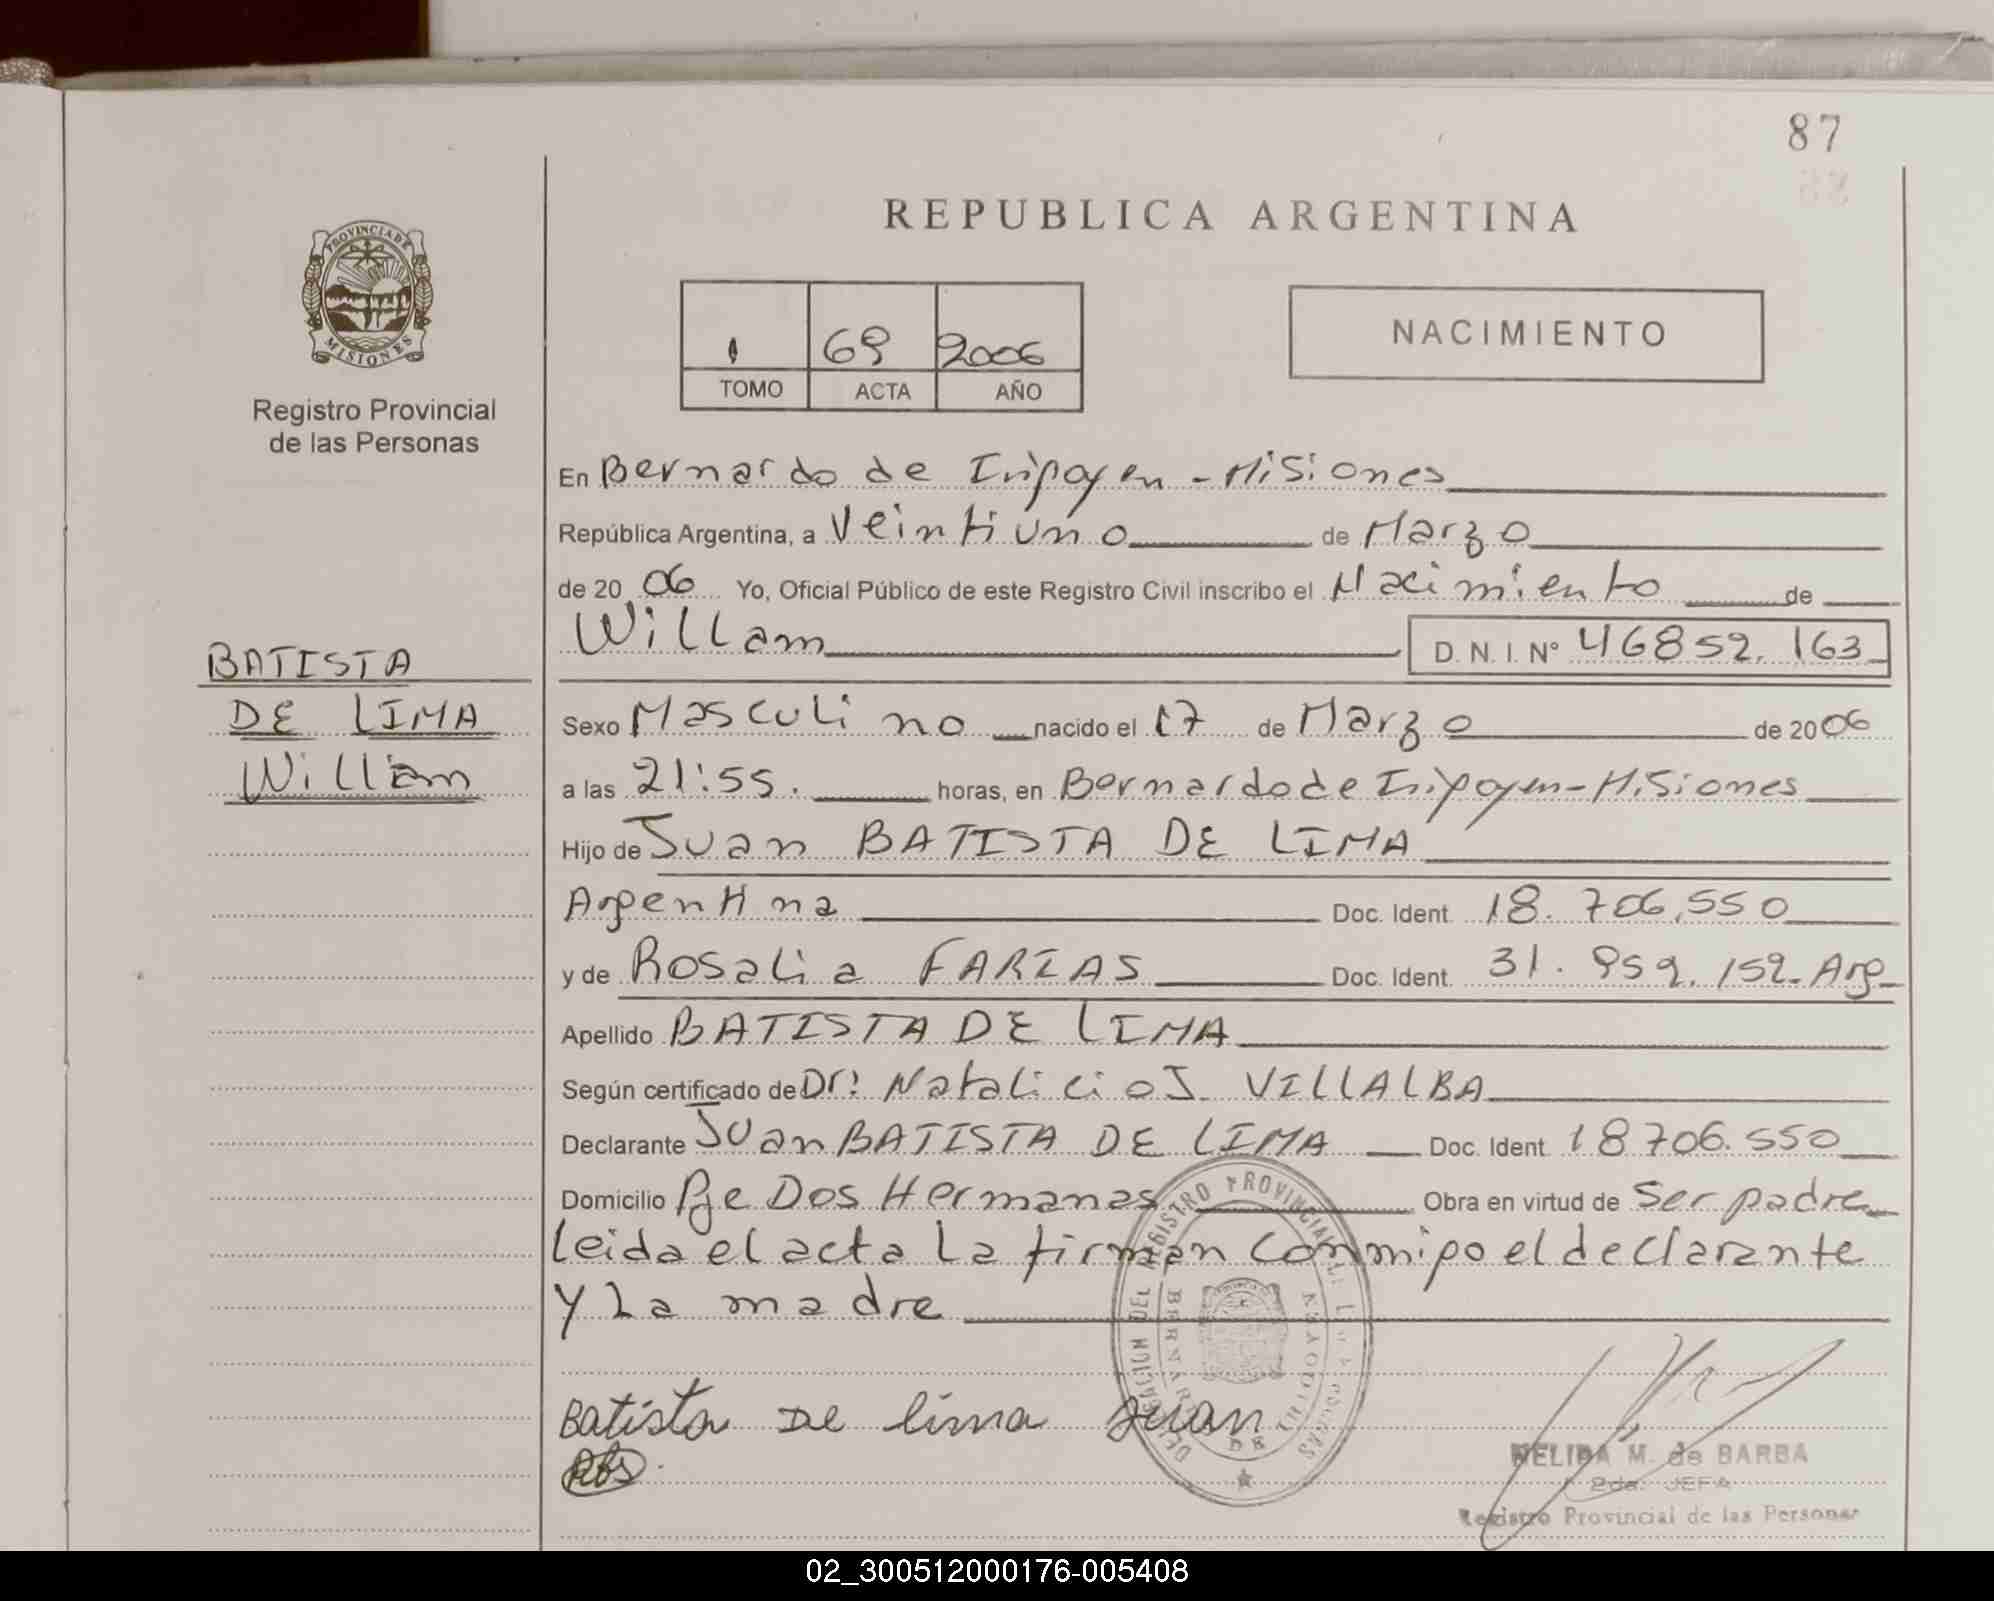 87
REPUBLICA ARGENTINA
PROVINCIA DE
MISIONES
Registro Provincial
de las Personas
1 69 2006
TOMO ACTA AÑO
NACIMIENTO
En Bernardo de Irigoyen - Misiones
República Argentina, a Veintiuno de Marzo
de 20 06 Yo, Oficial Público de este Registro Civil inscribo el Nacimiento de
Willam
D. N. I. Nº 46852.163
BATISTA
DE LIMA
Willam
Sexo Masculino nacido el 17 de Marzo de 2006
a las 21:55. horas, en Bernardo de Irigoyen - Misiones
Hijo de Juan BATISTA DE LIMA
Argentina Doc. Ident. 18.706.550
y de Rosalia FARIAS Doc. Ident. 31.959.152- Arg
Apellido BATISTA DE LIMA
Según certificado de Dr: Natalicio J. VILLALBA
Declarante Juan BATISTA DE LIMA Doc. Ident. 18706.550
Domicilio Pje Dos Hermanas Obra en virtud de Ser padre
Leida el acta la firman conmigo el declarante
y La madre
DELEGACION DEL REGISTRO PROVINCIAL DE LAS PERSONAS
BERNARDO DE IRIGOYEN
Batista DE lima Juan
NELIDA M. de BARBA
2da. JEFA
Registro Provincial de las Personas
02_300512000176-005408